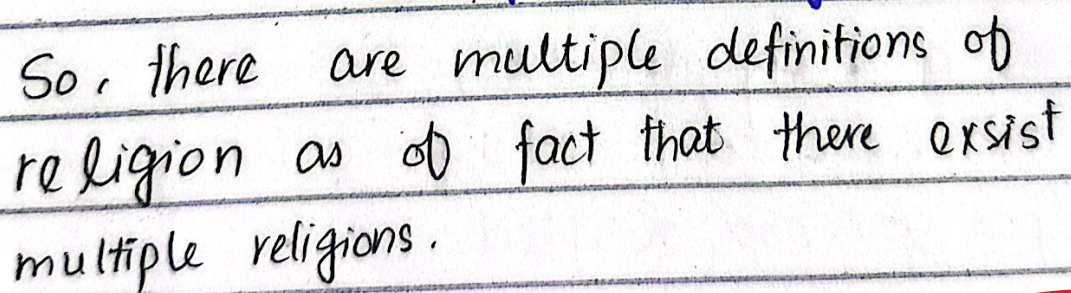 So, there are multiple definitions of
religion as of fact that there exsist
multiple religions.